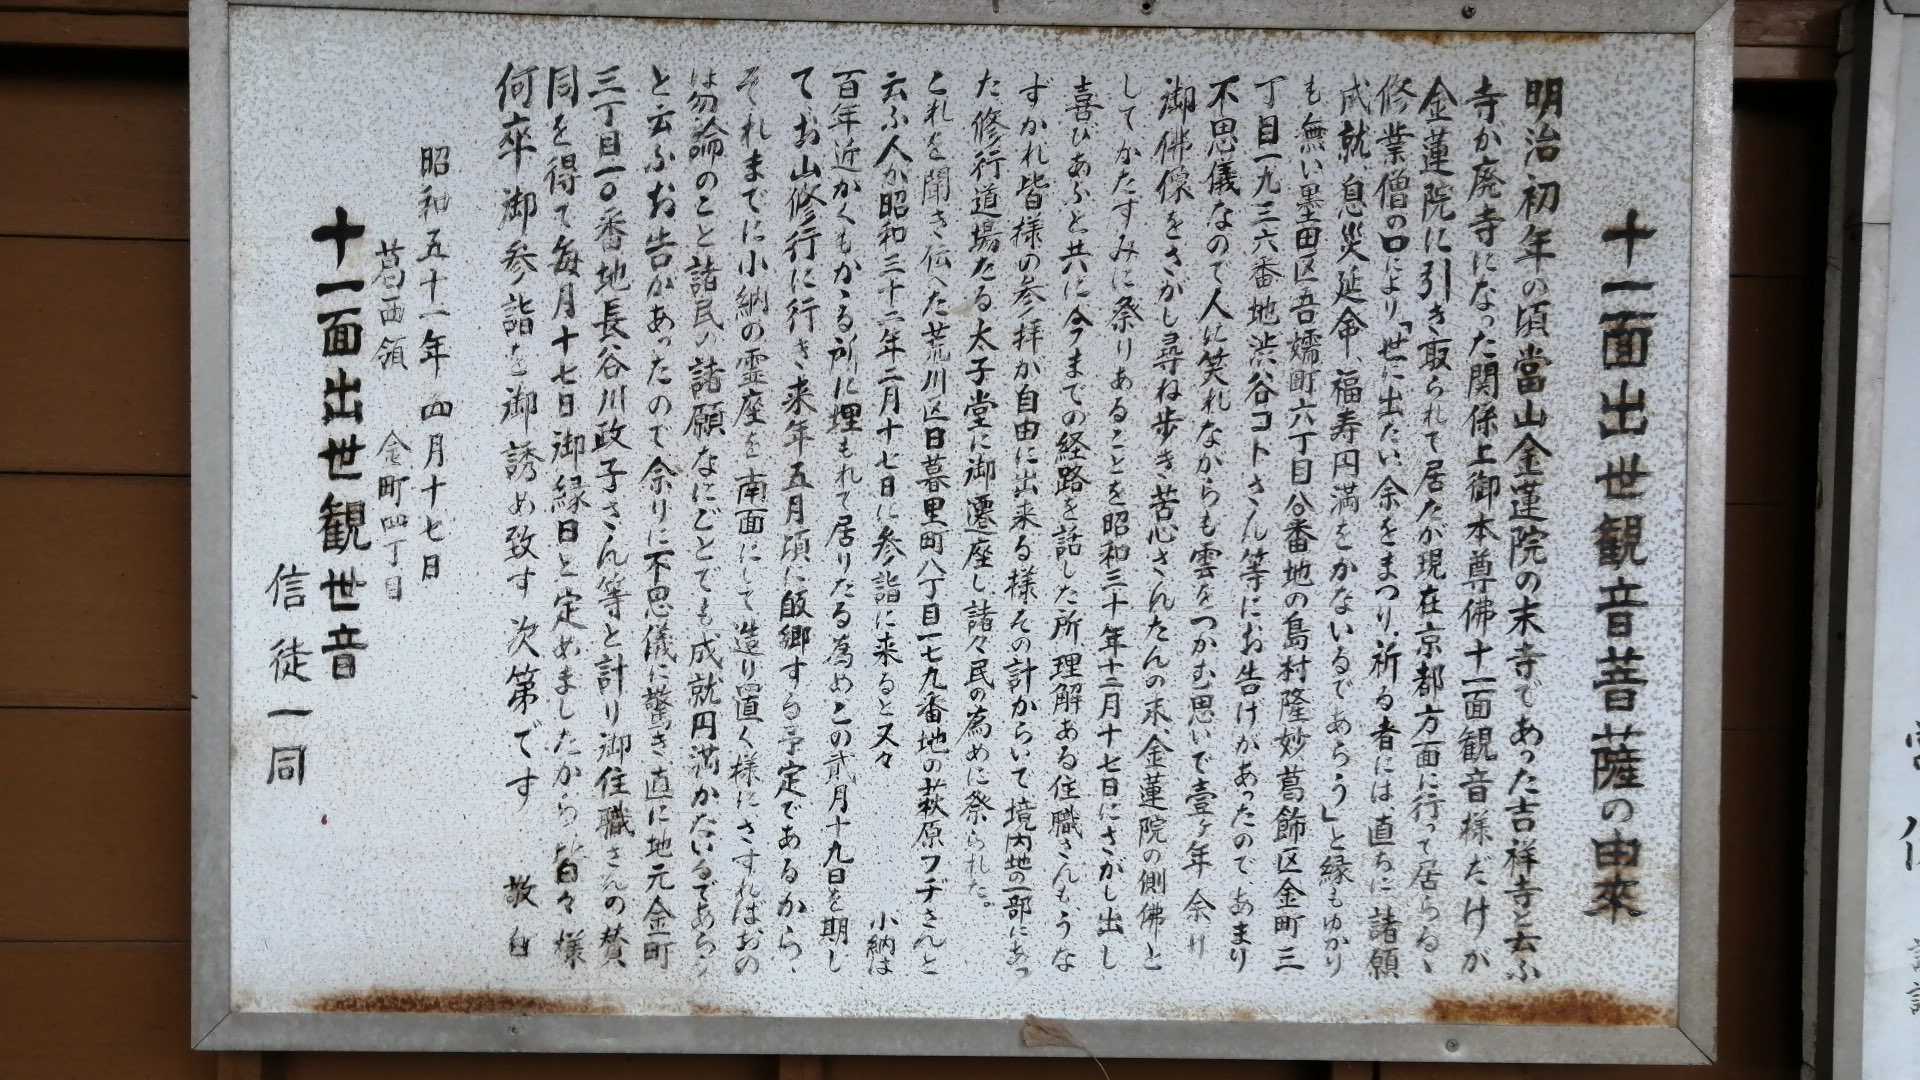 十一面出世観音菩薩の由来
明治初年の頃當山金蓮院の末寺であった吉祥寺と云ふ
寺が廃寺になった関係上御本尊佛十一面観音様だけが
金蓮院に引き取られて居たが現在京都方面に行って居らるゝ
修業僧の口により「世に出たい余をまつり、祈る者には直ちに諸願
成就、息災延命、福寿円満をかないるであらう」と縁もゆかり
も無い墨田区吾嬬町六丁目 番地の島村隆妙葛飾区金町三
丁目一九三六番地渋谷コトさん等にお告げがあったので、あまり
不思儀なので人に笑れながらも雲をつかむ思いで壹ヶ年余り
御佛像をさがし尋ね歩き苦心さんたんの末、金蓮院の側佛と
してかたすみに祭りあることを昭和三十年十二月十七日にさがし出し
喜びあふと共に今までの経路を話した所、理解ある住職さんも、うな
ずかれ皆様の参拝が自由に出来る様その計からいて境内地の一部にあっ
た修行道場たる太子堂に御遷座し、諸々民の為めに祭られた。
これを聞き伝へた荒川区日暮里町八丁目一七九番地の萩原フヂさんと
云ふ人が昭和三十二年二月十七日に参詣に来ると又々 小納は
百年近かくもかゝる所に埋もれて居りたる為めこの貮月十九日を期し
て、お山修行に行き来年五月頃に皈郷する予定であるから、
それまでに小納の霊座を南面にして造り置く様に、さすればおの
は勿論のこと諸民の諸願なにごとでも成就円満かないるであらう
と云ふお告があったので余りに不思儀に驚き直に地元金町
三丁目一〇番地長谷川政子さん等と計り御住職さんの賛
同を得て毎月十七日御縁日と定めましたから、皆々様
何卒御参詣を御誘め致す次第です 敬白
昭和五十一年四月十七日
葛西領 金町四丁目
十一面出世観世音
信徒一同